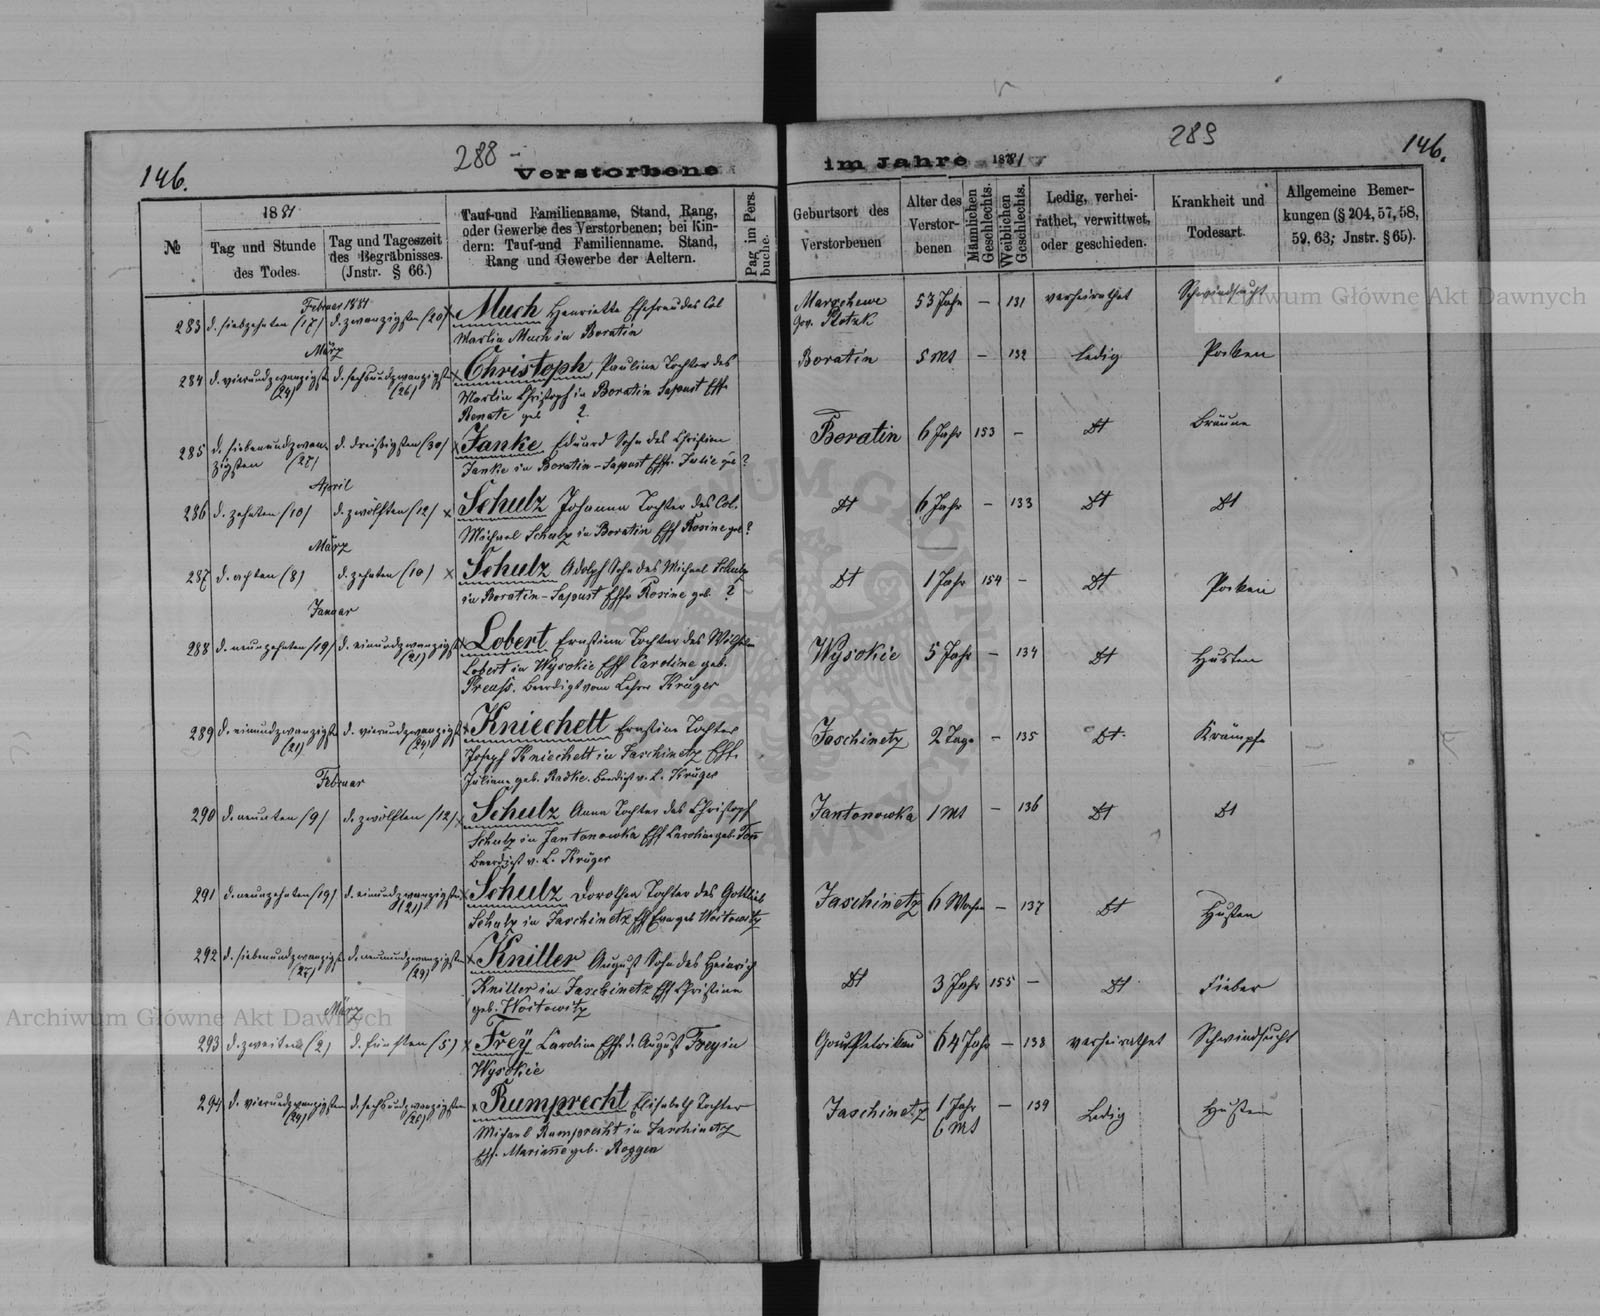 288 -
289
146.
146.
Verstorbene
im Jahre 1881
1881
№
Tag und Stunde
des Todes.
Tag und Tageszeit
des Begräbnisses.
(Jnstr. § 66.)
Tauf-und Familienname, Stand, Rang,
oder Gewerbe des Verstorbenen; bei Kin-
dern: Tauf-und Familienname. Stand,
Rang und Gewerbe der Aeltern.
Pag im Pers.
buche.
Geburtsort des
Verstorbenen
Alter des
Verstor-
benen
Männlichen
Geschlechts.
Weiblichen
Geschlechts.
Ledig, verhei-
rathet, verwittwet,
oder geschieden.
Krankheit und
Todesart.
Allgemeine Bemer-
kungen (§ 204, 57, 58,
59, 63; Jnstr. § 65).
Februar 1881
283 d. siebzehnten (17) d. zwanzigsten (20) x Much Henriette Ehefrau des Col
Martin Much in Boratin
Gov. Plotzk
53 Jahr – 131 verheirathet Schwindsucht
März
284 d. vierundzwanzigst (24) d. sechsundzwanzigst (26) x Christoph Pauline Tochter des
Martin Christoph in Boratin Sapust Eff.
Renate geb ?
Boratin 5 Mt – 132 ledig Pocken
285 d. siebenundzwan-
zigsten (27) d. dreißigsten (30) x Janke Eduard Sohn des Christian
Janke in Boratin-Sapust Eff. Julie geb ?
Boratin 6 Jahr 153 – Dt Bräune
April
286 d. zehnten (10) d. zwölften (12) x Schulz Johanna Tochter des Col.
Michael Schulz in Boratin Eff Rosine geb ?
Dt 6 Jahr – 133 Dt Dt
März
287 d. achten (8) d. zehnten (10) x Schulz Adolph Sohn des Michael Schulz
in Boratin-Sapust Effr Rosine geb. ?
Dt 1 Jahr 154 – Dt Pocken
Januar
288 d. neunzehnten (19) d. einundzwanzigst (21) x Lobert Ernstine Tochter des Wilhelm
Lobert in Wysokie Eff Caroline geb.
Preuß. beerdigt vom Lehrer Krüger
Wysokie 5 Jahr – 134 Dt Husten
289 d. einundzwanzigst (21) d. vierundzwanzigst (24) x Kniechett Ernstine Tochter
Joseph Kniechett in Jaschinetz Eff.
Juliane geb. Radke. beerdigt v. L. Krüger
Jaschinetz 2 Tage – 135 Dt. Krämpfe
Februar
290 d. neunten (9) d. zwölften (12) x Schulz Anna Tochter des Christoph
Schulz in Jantonowka Eff Caroline geb.
beerdigt v. L. Krüger
Jantonowka 1 Mt – 136 Dt Dt
291 d. neunzehnten (19) d. einundzwanzigsten (21) x Schulz Dorothea Tochter des Gottlieb
Schulz in Jaschinetz Eff Eva geb Woitowitz
Jaschinetz 6 Wochen – 137 Dt Husten
292 d. siebenundzwanzigst (27) d. neunundzwanzigsten (29) x Kniller August Sohn des Heinrich
Kniller in Jaschinetz Eff Christine
geb. Woitowitz
Dt 3 Jahr 155 – Dt Fieber
März
293 d. zweiten (2) d. fünften (5) x Frey Caroline Eff. d. August Frey in
Wysokie
Gouv Petrikau 64 Jahr – 138 verheirathet Schwindsucht
294 d. vierundzwanzigsten (24) d. sechsundzwanzigsten (26) x Rumprecht Elisabeth Tochter
Michael Rumprecht in Jaschinetz
Eff. Marianne geb. Roggen
Jaschinetz 1 Jahr
6 Mt – 139 Ledig Husten
Archiwum Główne Akt Dawnych
Archiwum Główne Akt Dawnych